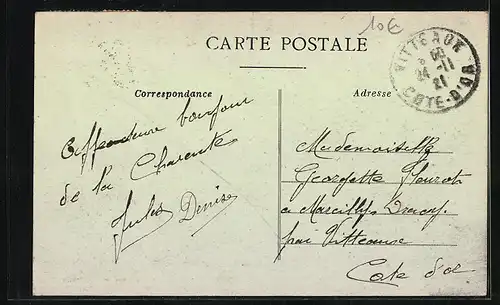 10€
CARTE POSTALE
VITTEAUX
24 -11
21
COTE-D'OR
Correspondance
Adresse
Affectueux bonjour
de la Charente
Jules Denise
Mademoiselle
Georgette
a Marcilly
par Vitteaux
Cote d'or